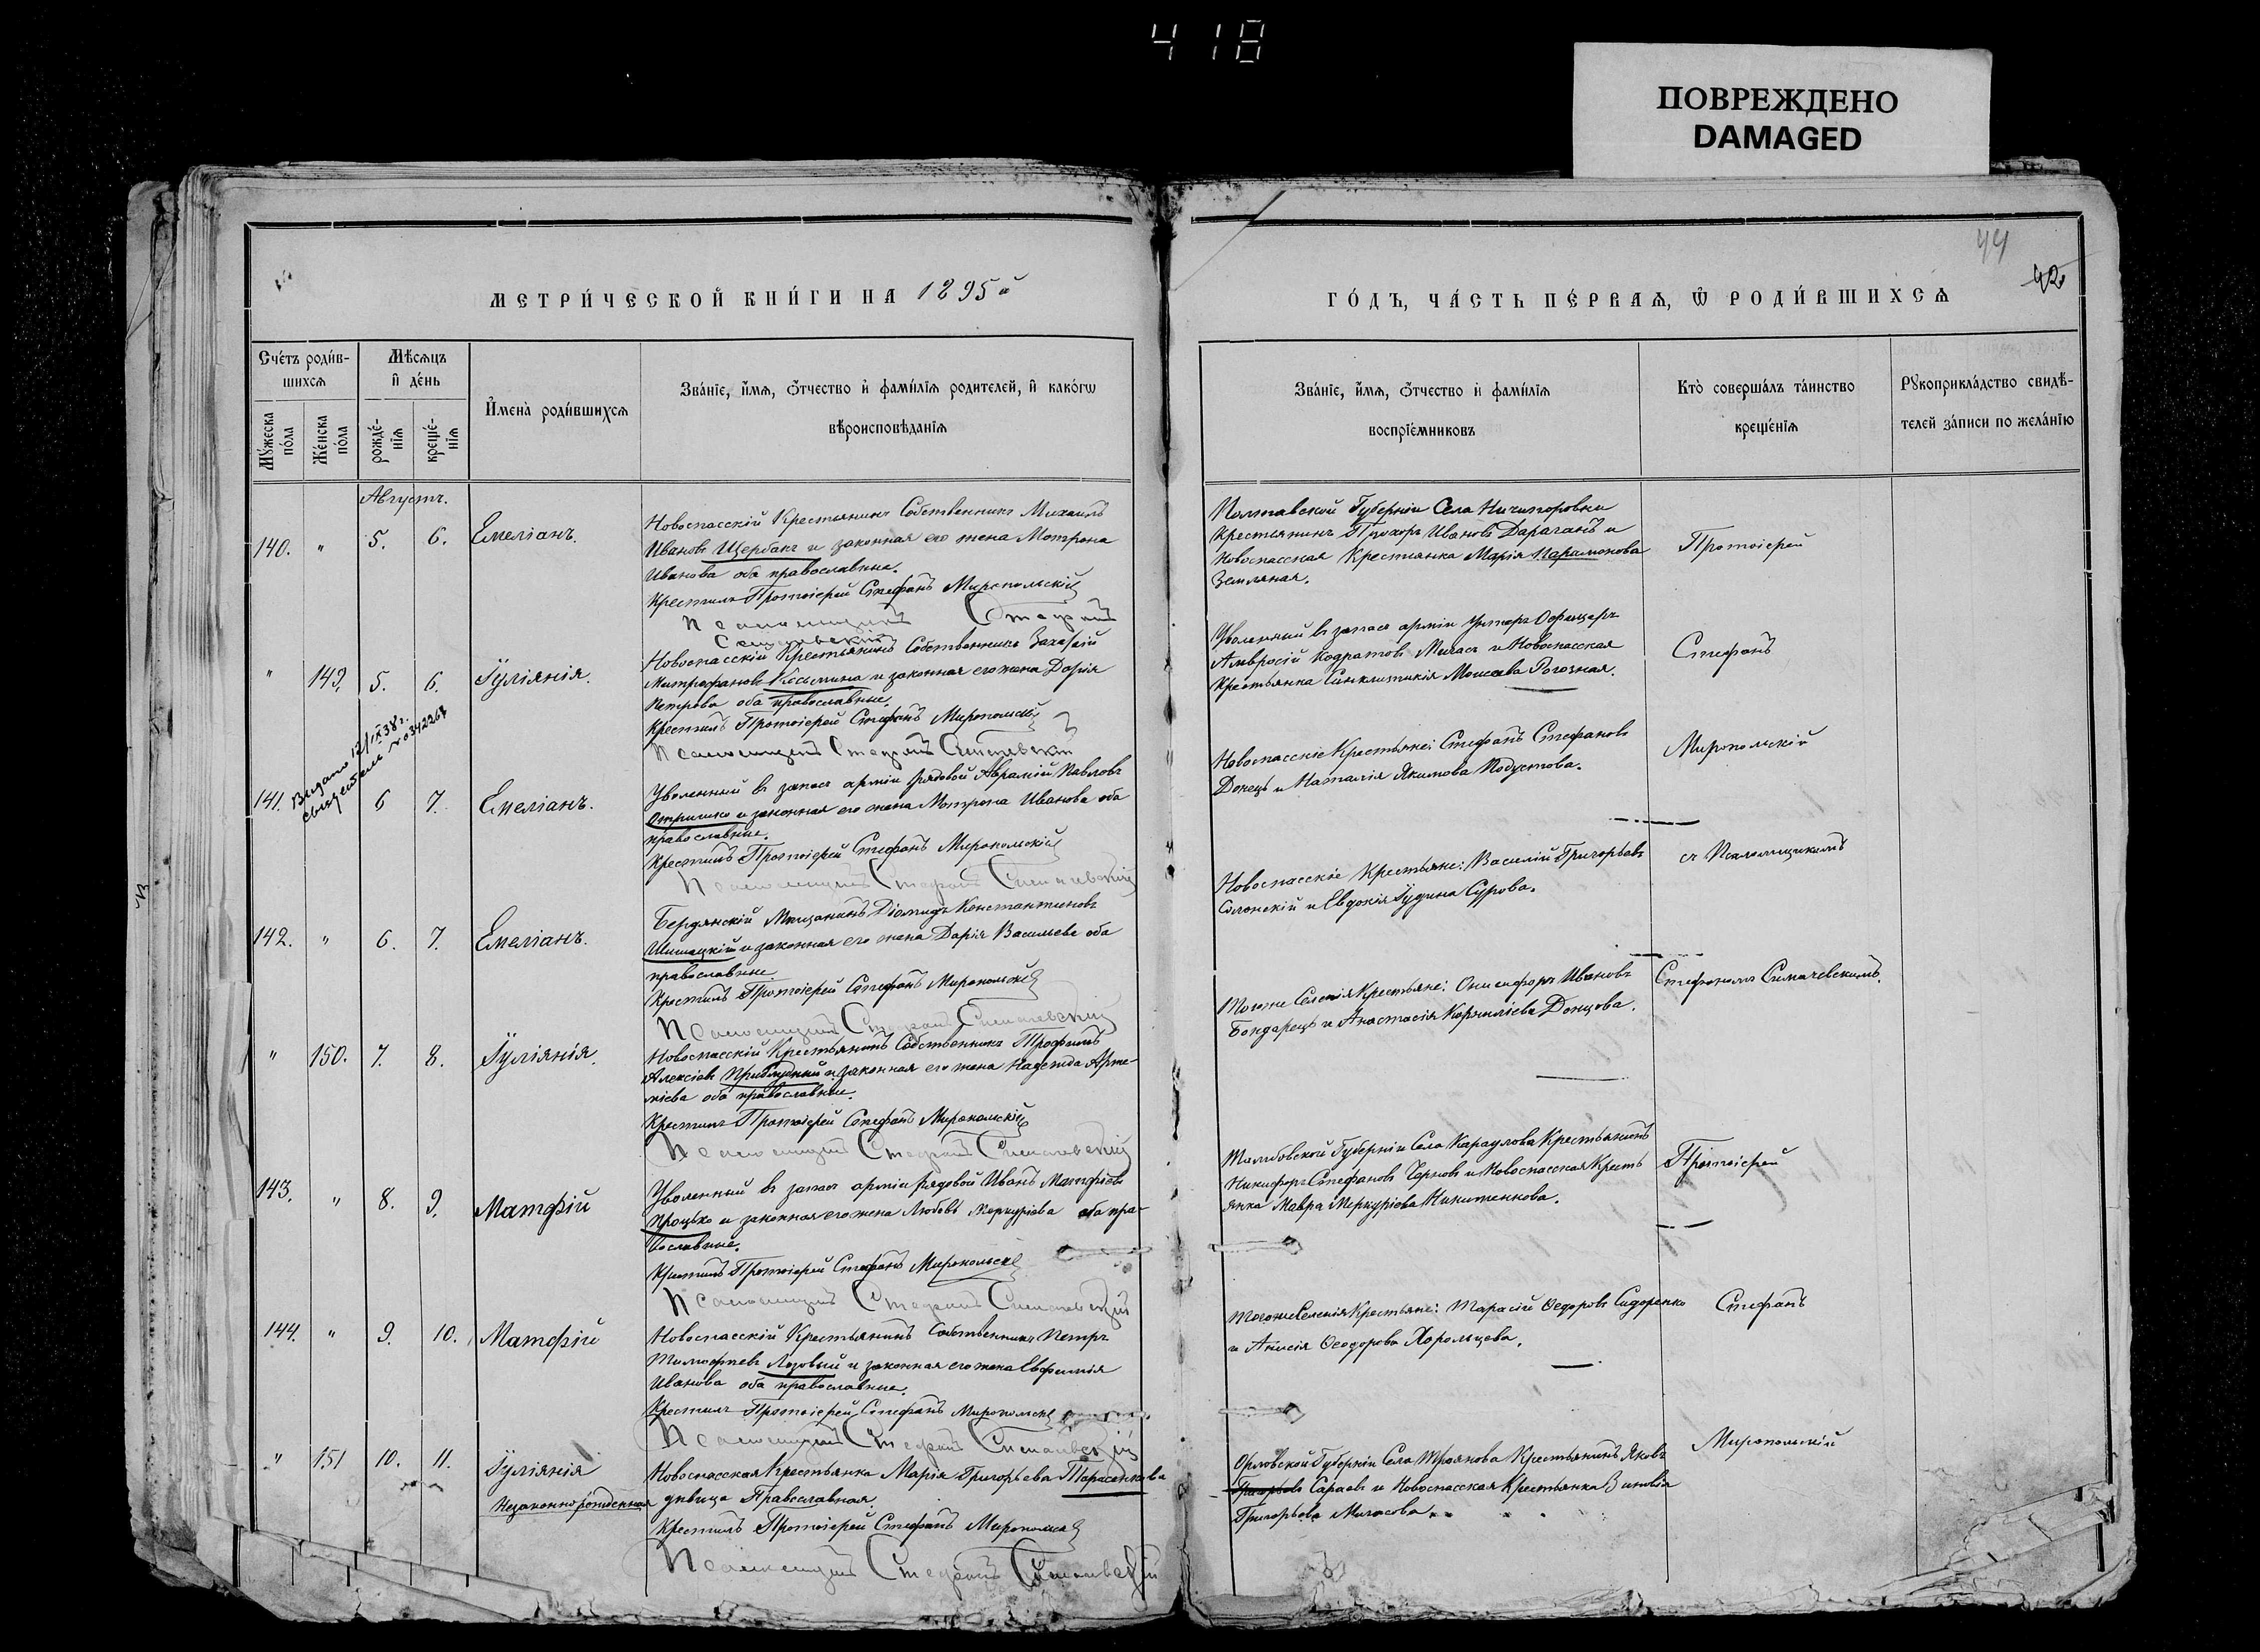 418
ПОВРЕЖДЕНО
DAMAGED
44
42
МЕТРИ́ЧЕСКОЙ КНИ́ГИ НА 1895й
ГО́ДЪ, ЧА́СТЬ ПЕ́РВАѦ, Ѿ РОДИ́ВШИХСѦ
Сче́тъ роди́вшихсѧ
Мꙋ́жеска по́ла
Же́нска по́ла
Мѣ́сѧцъ и҆ де́нь
рожде́нїѧ
креще́нїѧ
И҆мена̀ роди́вшихсѧ
Зва́нїе, и҆́мѧ, ѻ҆́тчество и҆ фами́лїѧ родителей, и҆ како́гѡ
вѣроисповѣ́данїѧ
Зва́нїе, и҆́мѧ, ѻ҆́тчество и҆ фами́лїѧ
воспрїе́мниковъ
Кто̀ соверша́лъ та́инство
креще́нїѧ
Рꙋкоприкла́дство свидѣ́-
телей за́писи по жела́нїю
Августъ.
140. " 5. 6. Емеліанъ.
Новоспасскій Крестьянинъ Собственникъ Михаилъ
Ивановъ Щербакъ и законная его жена Мотрона
Иванова оба православные.
Крестилъ Протоіерей Стефанъ Миропольскій
Псаломщикъ Стефанъ
Полтавской Губерніи Села Ничипоровки
Крестьянинъ Прохоръ Ивановъ Дараганъ и
Новоспасская Крестьянка Марія Парамонова
Земляная.
Протоіерей
" 149. 5. 6. Іуліянія.
Новоспасскій Крестьянинъ Собственникъ Захарій
Митрофановъ и законная его жена Дарія
Петрова оба православные.
Крестилъ Протоіерей Стефанъ Миропольскій
Псаломщикъ Стефанъ Симачевскій
Уволенный въ запасъ арміи Унтеръ Офицеръ
Амвросій Кодратовъ Миласъ и Новоспасская
Крестьянка Синклитикія Моисеева Рогозная.
Стефанъ
Выдано 12/IX 38 г.
свидетель № 0342267
141. 6 7. Емеліанъ.
Уволенный въ запасъ арміи рядовой Авраамій Павловъ
Отришко и законная его жена Мотрона Иванова оба
православные.
Крестилъ Протоіерей Стефанъ Миропольскій
Псаломщикъ Стефанъ Симачевскій
Новоспасскіе Крестьяне: Стефанъ Стефановъ
Донецъ и Наталія Якимова Подустова.
Миропольскій
142. " 6. 7. Емеліанъ.
Бердянскій Мещанинъ Діомидъ Константиновъ
Шишацкій и законная его жена Дарія Васильева оба
православные.
Крестилъ Протоіерей Стефанъ Миропольскій
Псаломщикъ Стефанъ Симачевскій
Новоспасскіе Крестьяне: Василій Григорьевъ
Солонскій и Евдокія Іудина Сурова.
съ Псаломщикомъ
" 150. 7. 8. Іуліянія.
Новоспасскій Крестьянинъ Собственникъ Трофимъ
Алексіевъ Приблудный и законная его жена Надежда Арте-
міева оба православные.
Крестилъ Протоіерей Стефанъ Миропольскій
Псаломщикъ Стефанъ Симачевскій
Тогоже Селенія Крестьяне: Онисифоръ Ивановъ
Бондарець и Анастасія Корниліева Донцова.
Стефаномъ Симачевскимъ
143. " 8. 9. Матфій
Уволенный въ запасъ арміи рядовой Иванъ Матфіевъ
Процько и законная его жена Любовь Меркуріева оба пра-
вославные.
Крестилъ Протоіерей Стефанъ Миропольскій
Псаломщикъ Стефанъ Симачевскій
Тамбовской Губерніи Села Караулова Крестьянинъ
Никифоръ Стефановъ Черновъ и Новоспасская Кресть
янка Мавра Меркуріева Никитенкова.
Протоіерей
144. " 9. 10. Матфій
Новоспасскій Крестьянинъ Собственникъ Петръ
Тимофеевъ Лозовый и законная его жена Евфимія
Иванова оба православные.
Крестилъ Протоіерей Стефанъ Миропольскій
Псаломщикъ Стефанъ Симачевскій
Тогоже Селенія Крестьяне: Тарасій Федоровъ Сидоренко
и Анисія Феодорова Хорольцева.
Стефанъ
" 151 10. 11. Іуліянія
Незаконнорожденная
Новоспасская Крестьянка Марія Григорьева Тарасенкова
дѣвица Православная.
Крестилъ Протоіерей Стефанъ Миропольскій
Псаломщикъ Стефанъ Симачевскій
Орловской Губерніи Села Троянова Крестьянинъ Яковъ
Григорьевъ Сараевъ и Новоспасская Крестьянка Зиновія
Григорьева Миласова.
Миропольскій